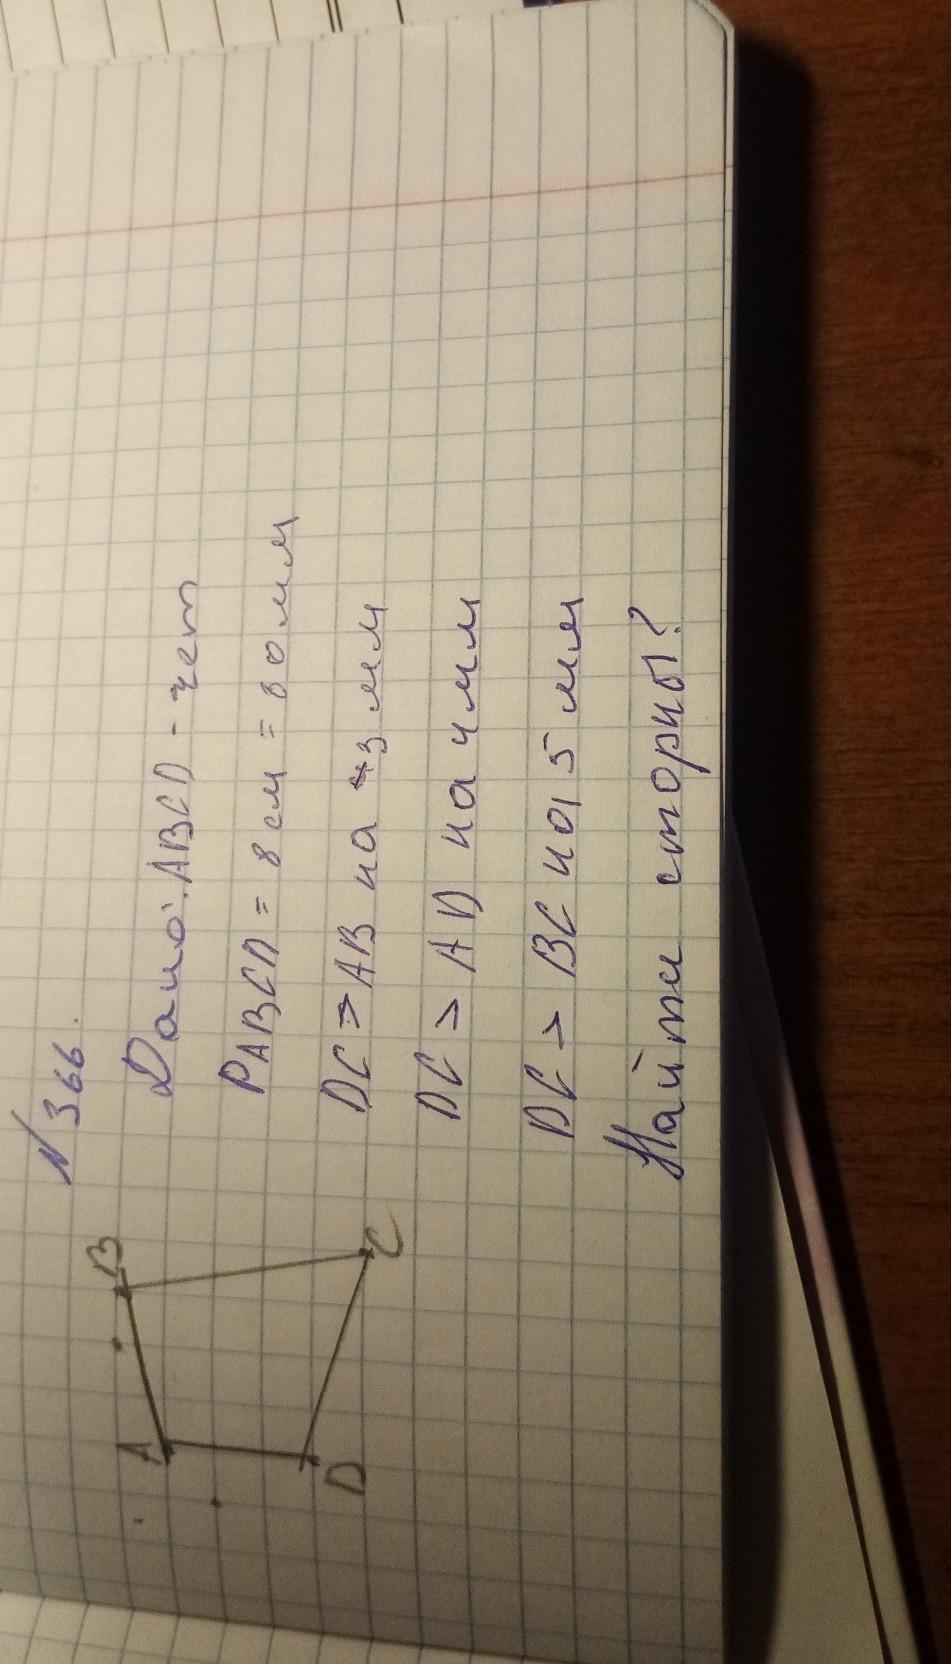 № 366.
A
B
C
D
Дано: ABCD - чет
PABCD = 8 см = 80 мм
DC > AB на 3 мм
DC > AD на 4 мм
DC > BC на 5 мм
Найти сторны?